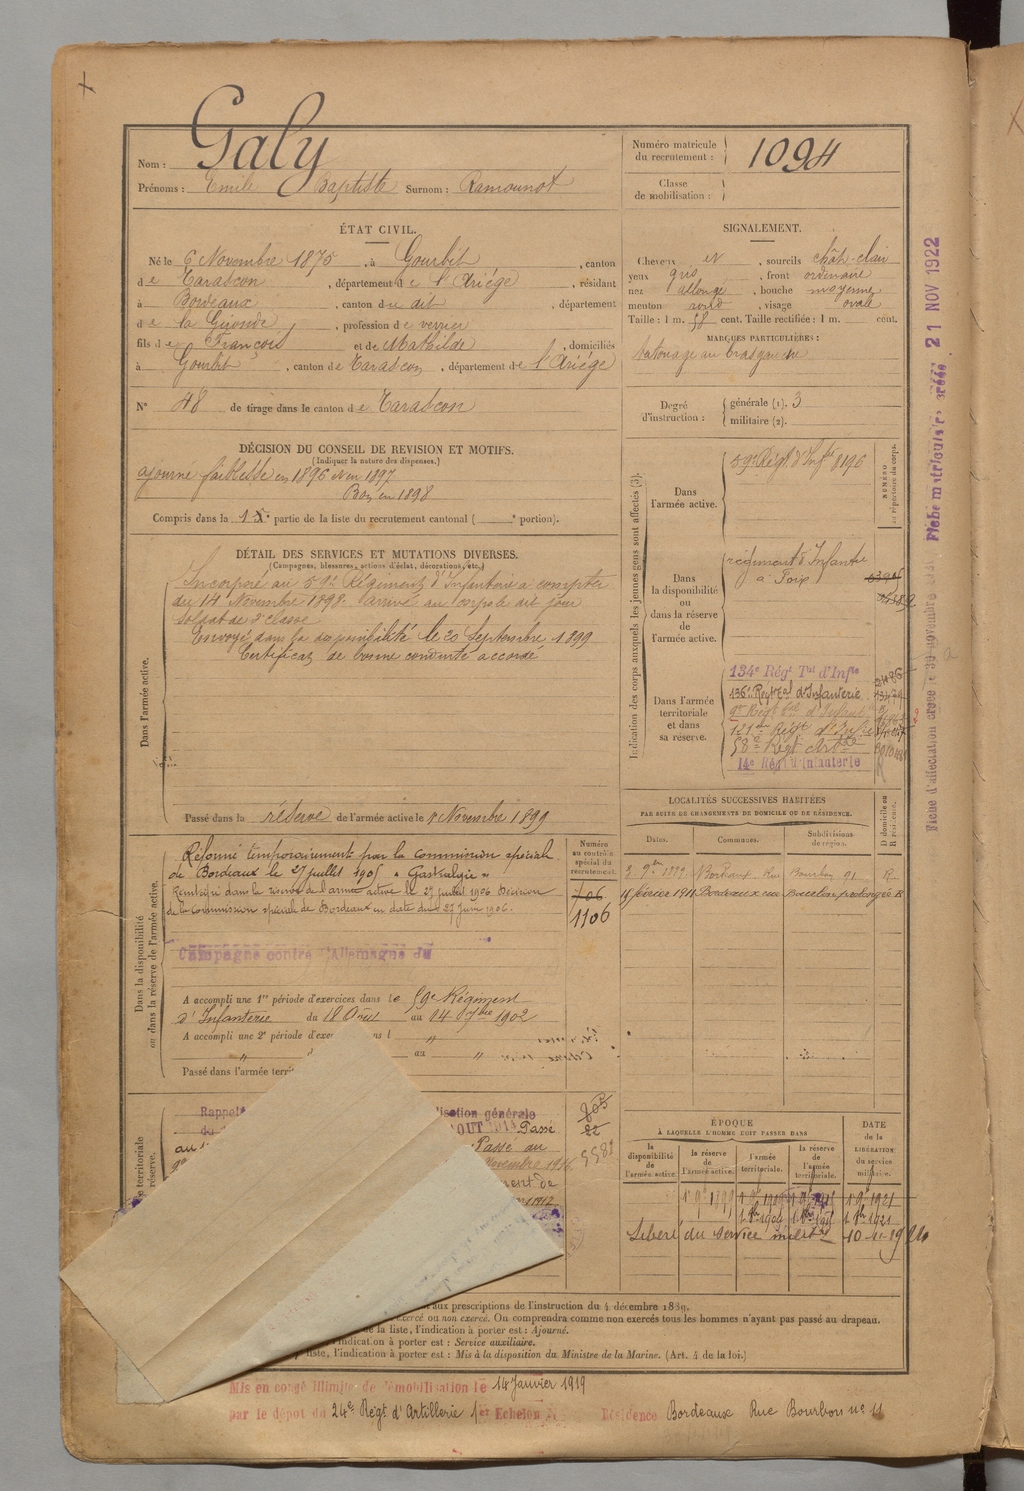 Nom : Galy
Prénoms : Emile Baptiste Surnom : Ramounot
Numéro matricule du recrutement : 1094
Classe de mobilisation :
ÉTAT CIVIL.
Né le 6 Novembre 1875, à Gourbit, canton
de Tarascon, département de l'Ariège, résidant
à Bordeaux, canton du dit, département
de la Gironde, profession de verrier
fils de François et de Mathilde, domiciliés
à Gourbit, canton de Tarascon, département de l'Ariège
N° 48 de tirage dans le canton de Tarascon
SIGNALEMENT.
Cheveux et, sourcils chât-clair
yeux gris, front ordinaire
nez allongé, bouche moyenne
menton rond, visage ovale
Taille : 1 m. 58 cent. Taille rectifiée : 1 m. cent.
MARQUES PARTICULIÈRES :
tatouage au bras gauche
Degré d'instruction : générale (1). 3
militaire (2).
DÉCISION DU CONSEIL DE REVISION ET MOTIFS.
(Indiquer la nature des dispenses.)
ajourné faiblesse en 1896 et en 1897
Bon en 1898
Compris dans la 1e partie de la liste du recrutement cantonal ( e portion).
DÉTAIL DES SERVICES ET MUTATIONS DIVERSES.
(Campagnes, blessures, actions d'éclat, décorations, etc.)
Dans l'armée active.
Incorporé au 59e Régiment d'Infanterie à compter
du 14 Novembre 1898. arrivé au corps le dit jour
soldat de 2e classe
Envoyé dans la disponibilité le 20 Septembre 1899
Certificat de bonne conduite accordé
Passé dans la réserve de l'armée active le 1 Novembre 1899
Indication des corps auxquels les jeunes gens sont affectés (3).
NUMÉRO au répertoire du corps.
Dans l'armée active.
59e Régt d'Infie 8196
Dans la disponibilité ou dans la réserve de l'armée active.
régiment d'Infantie
à Foix
Dans l'armée territoriale et dans sa réserve.
134e Régt Tal d'Infie
136e Régt Tal d'Infanterie
9e Régt Tal d'Infant
58e Régt
14e Régt d'Infanterie
LOCALITÉS SUCCESSIVES HABITÉES
PAR SUITE DE CHANGEMENTS DE DOMICILE OU DE RÉSIDENCE.
Dates. Communes. Subdivisions de région. D domicile ou R résidence.
2 9bre 1899 Bordeaux Rue Bourbon 91 R
11 février 1911 Bordeaux rue Bacalan prolongée R
Dans la disponibilité ou dans la réserve de l'armée active.
Numéro au contrôle spécial du recrutement.
Réformé temporairement par la commission spéciale
de Bordeaux le 27 juillet 1905 « Gastralgie »
Réintégré dans la réserve de l'armée active le 27 juillet 1906 Décision
de la Commission spéciale de Bordeaux en date du 27 juin 1906.
706
1106
Campagne contre l'Allemagne du
A accompli une 1re période d'exercices dans le 59e Régiment
d'Infanterie du 18 Août au 14 7bre 1902
A accompli une 2e période d'exer l "
" au "
Passé dans l'armée terri
Rappel
lisation générale
OUT 1914 Passé
Passé au
Novembre 1916
ment de
5582
ÉPOQUE
À LAQUELLE L'HOMME DOIT PASSER DANS
la disponibilité de l'armée active. la réserve de l'armée active. l'armée territoriale. la réserve de l'armée territoriale.
DATE de la LIBÉRATION du service militaire.
Libéré du service militre 10-11-19
aux prescriptions de l'instruction du 4 décembre 1889.
exercé ou non exercé. On comprendra comme non exercés tous les hommes n'ayant pas passé au drapeau.
de la liste, l'indication à porter est : Ajourné.
l'indication à porter est : Service auxiliaire.
liste, l'indication à porter est : Mis à la disposition du Ministre de la Marine. (Art. 4 de la loi.)
Mis en congé illimité de démobilisation le 14 Janvier 1919
par le dépôt du 24e Régt d'Artillerie 1er Echelon Résidence Bordeaux Rue Bourbon no 11
Fiche d'affectation créée le 30 novembre
Fiche matriculaire créée 21 NOV 1922